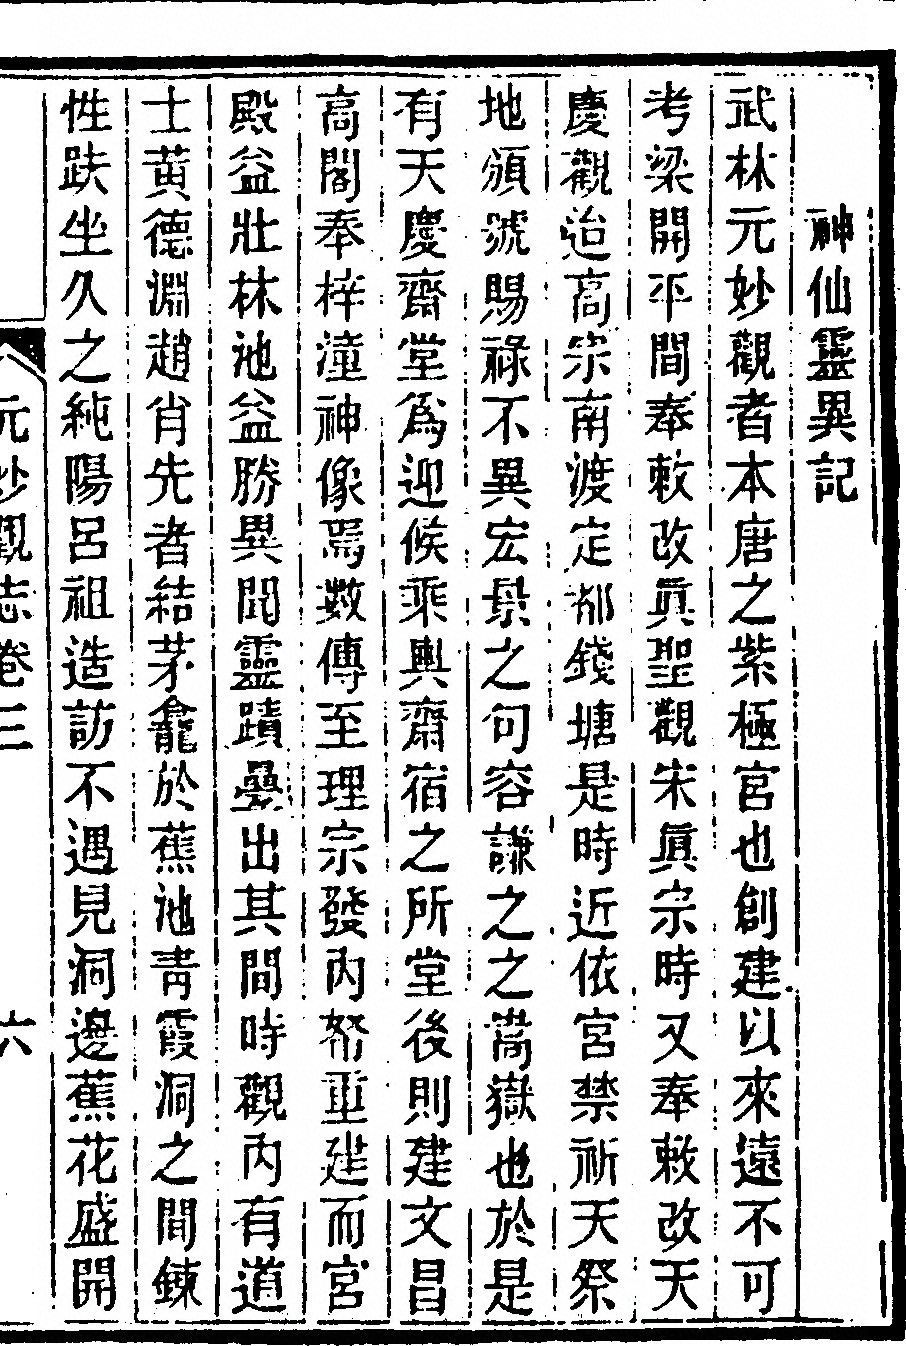 神仙靈異記
武林元妙觀者本唐之紫極宮也創建以來遠不可
考梁開平間奉敕改眞聖觀宋眞宗時又奉敕改天
慶觀迨高宗南渡定都錢塘是時近依宮禁祈天祭
地頒號賜祿不異宏景之句容謙之之嵩嶽也於是
有天慶齋堂爲迎候乘輿齋宿之所堂後則建文昌
高閣奉梓潼神像焉數傳至理宗發內帑重建而宮
殿益壯林池益勝異聞靈蹟疊出其間時觀內有道
士黃德淵趙肖先者結茅龕於蕉池靑霞洞之間鍊
性趺坐久之純陽呂祖造訪不遇見洞邊蕉花盛開
元妙觀志卷三
六